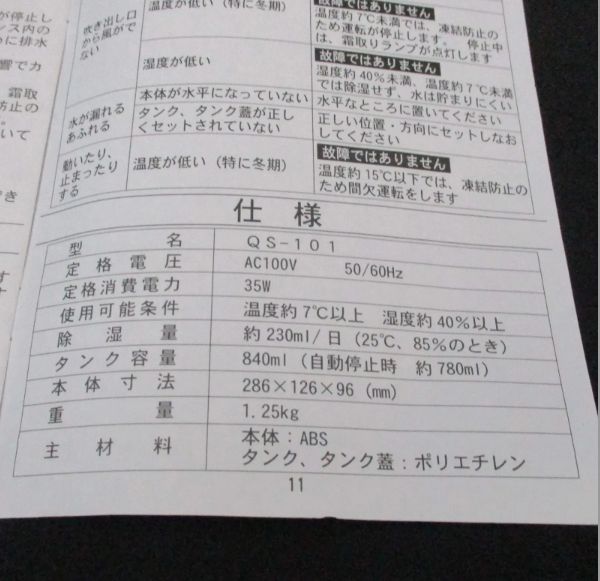 が停止し
ンス内の
らに排水
響でカ
霜取
防止の
いて
温度が低い（特に冬期）
吹き出し口
から風がで
ない
故障ではありません
温度約7℃未満では、凍結防止の
ため運転が停止します。 停止中
は、霜取りランプが点灯します
湿度が低い
故障ではありません
湿度約40％未満、温度約7℃未満
では除湿せず、水は貯まりにくい
水が漏れる
あふれる
本体が水平になっていない
水平なところに置いてください
タンク、タンク蓋が正し
くセットされていない
正しい位置・方向にセットしなお
してください
動いたり、
止まったり
する
温度が低い（特に冬期）
故障ではありません
温度約15℃以下では、凍結防止の
ため間欠運転をします
仕 様
型名 QS-101
定格電圧 AC100V 50/60Hz
定格消費電力 35W
使用可能条件 温度約7℃以上 湿度約40％以上
除湿量 約230ml/日（25℃、85％のとき）
タンク容量 840ml（自動停止時 約780ml）
本体寸法 286×126×96（mm）
重量 1.25kg
主材料 本体：ABS
タンク、タンク蓋：ポリエチレン
11